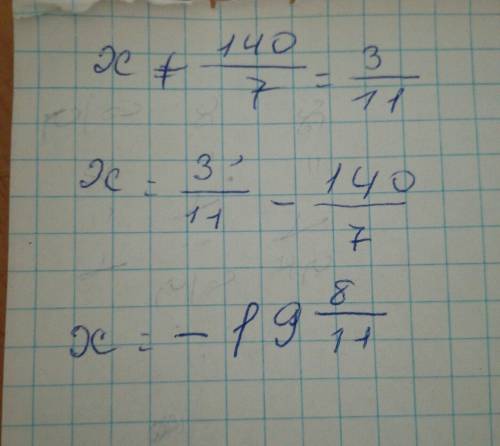 x + 140/7 = 3/11
x = 3/11 - 140/7
x = - 19 8/11